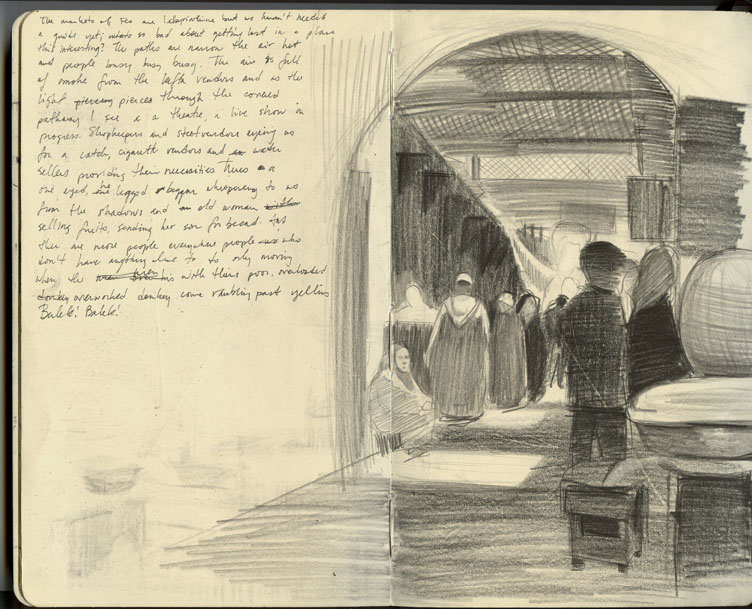 The markets of Fes are labyrinthine but we haven't needed
a guide yet; what's so bad about getting lost in a place
this interesting? The paths are narrow the air hot
and people busy busy busy. The air is full
of smoke from the kefta vendors and as the
light piercing pierces through the covered
pathway I see a theatre, a live show in
progress. Shopkeepers and street vendors eyeing us
for a catch, cigarette vendors and water
sellers providing their necessities. There's a
one eyed, one legged beggar whispering to us
from the shadows and an old woman
selling fruits, sending her son for bread. And
there are more people everywhere people who
don't have anything else to do only moving
when the with their poor, overloaded
donkey overworked donkey come rambling past yelling
Balek! Balek!